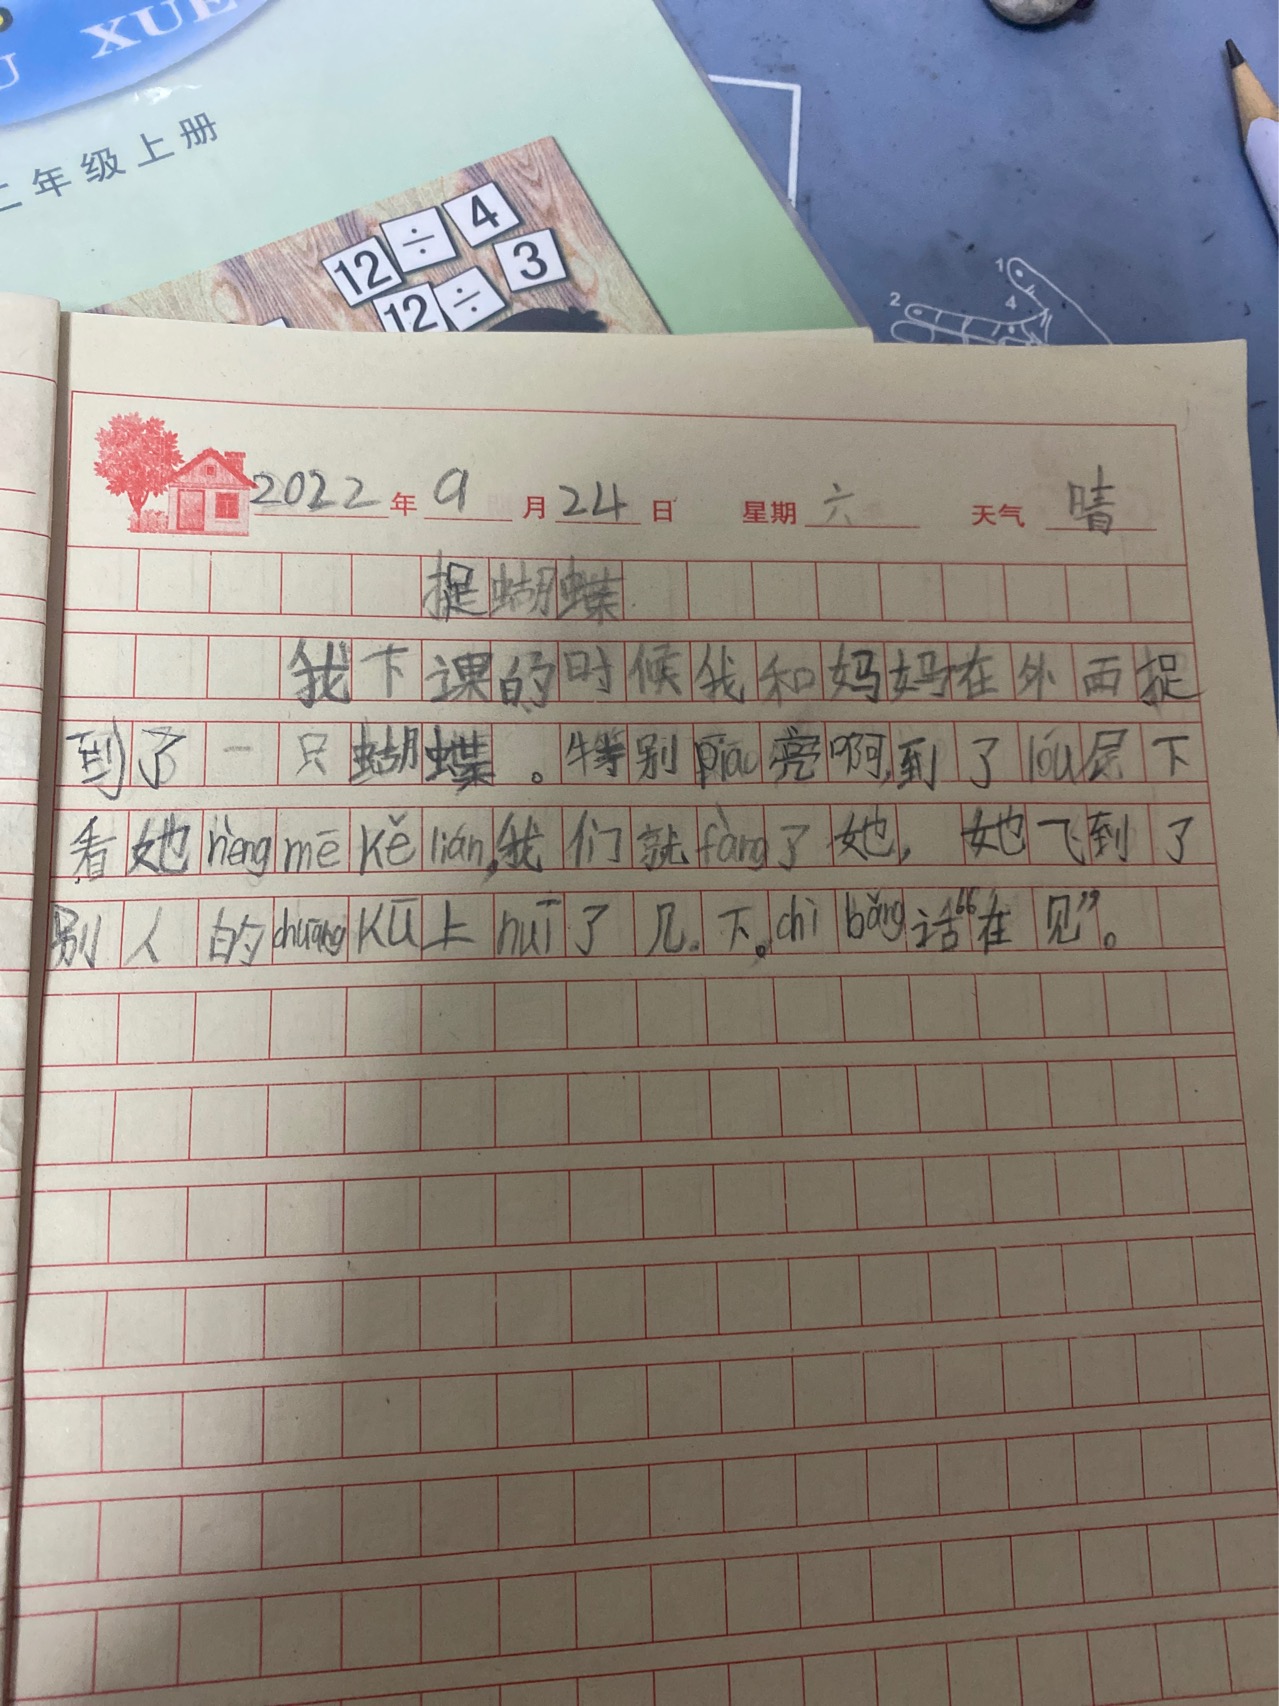 U XUE
二年级上册
12 ÷ 4
12 ÷ 3
1
2
4
2022年9月24日 星期六 天气 晴
捉蝴蝶
我下课的时候我和妈妈在外面捉
到了一只蝴蝶。特别piāo亮啊,到了lóu层下
看她nèng mē kě lián,我们就fàng了她,她飞到了
别人的chuāng kū上huī了几下。chì bǎng话“在见”。